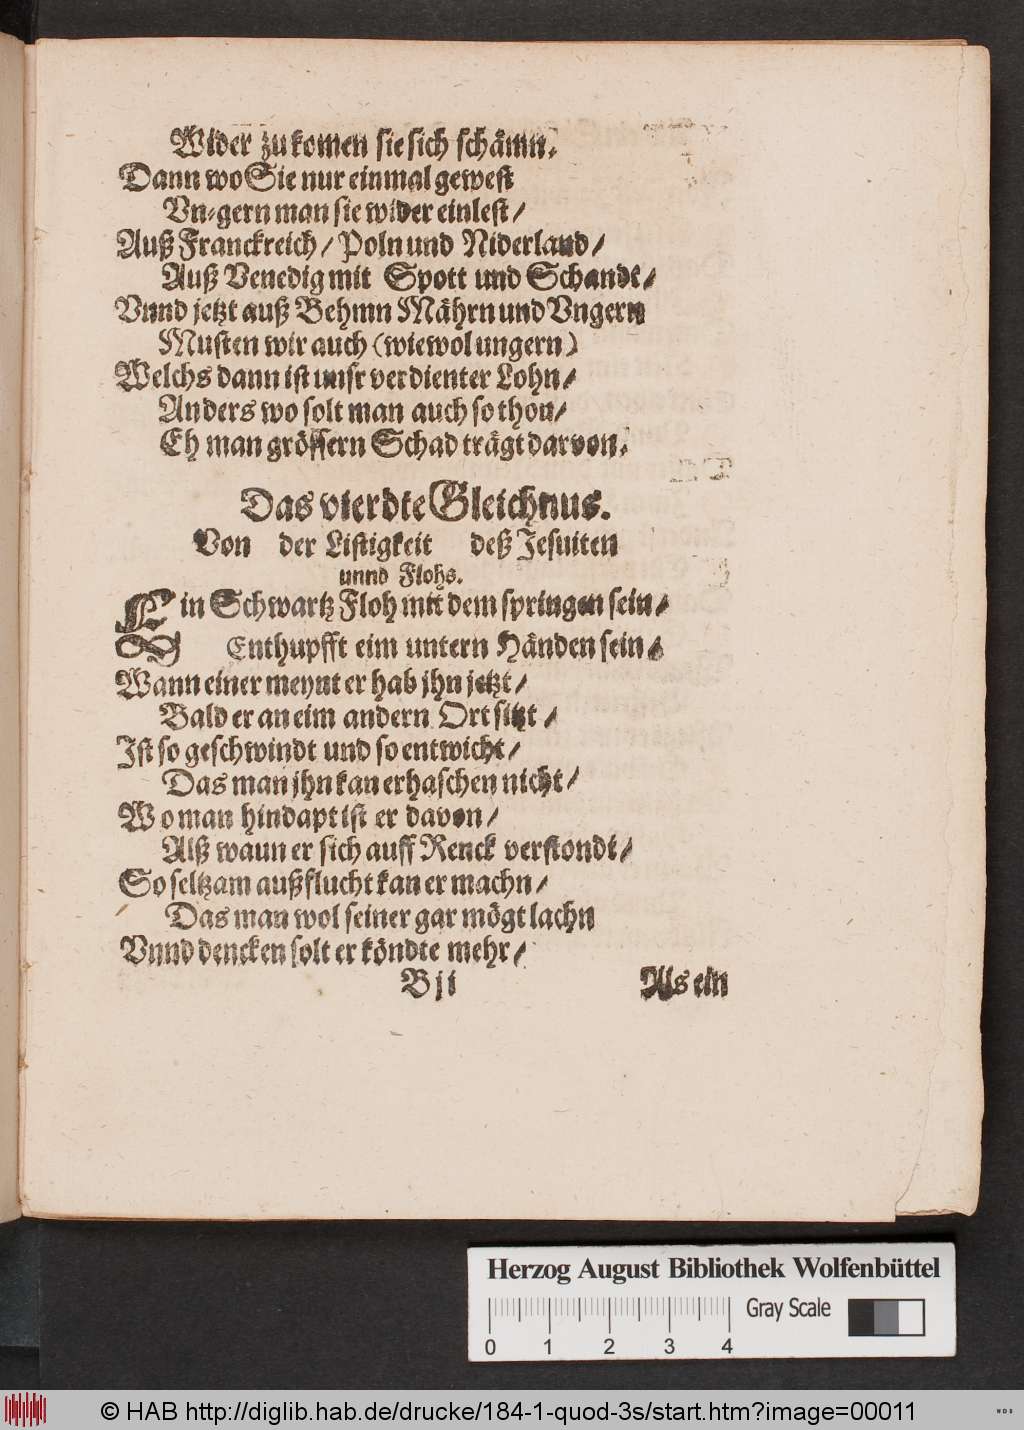 Wider zu komen sie sich schämn.
Dann wo Sie nur einmal gewest
Vn-gern man sie wider einlest /
Auß Franckreich / Poln und Niderland /
Auß Venedig mit Spott und Schandt /
Vnnd jetzt auß Behmn Mährn und Vngern
Musten wir auch (wiewol ungern)
Welchs dann ist unsr verdienter Lohn /
Anders wo solt man auch so thon /
Eh man grössern Schad trägt darvon.
Das vierdte Gleichnus.
Von der Listigkeit deß Jesuiten
unnd Flohs.
Ein Schwartz Floh mit dem springen sein /
Enthupfft eim untern Händen sein.
Wann einer meynt er hab jhn jetzt /
Bald er an eim andern Ort sitzt /
Ist so geschwindt und so entwicht /
Das man jhn kan erhaschen nicht /
Wo man hindapt ist er davon /
Alß wann er sich auff Renck verstondt /
So seltzam außflucht kan er machn /
Das man wol seiner gar mögt lachn
Vnnd dencken solt er köndte mehr /
B ij Als ein
Herzog August Bibliothek Wolfenbüttel
Gray Scale
0 1 2 3 4
© HAB http://diglib.hab.de/drucke/184-1-quod-3s/start.htm?image=00011